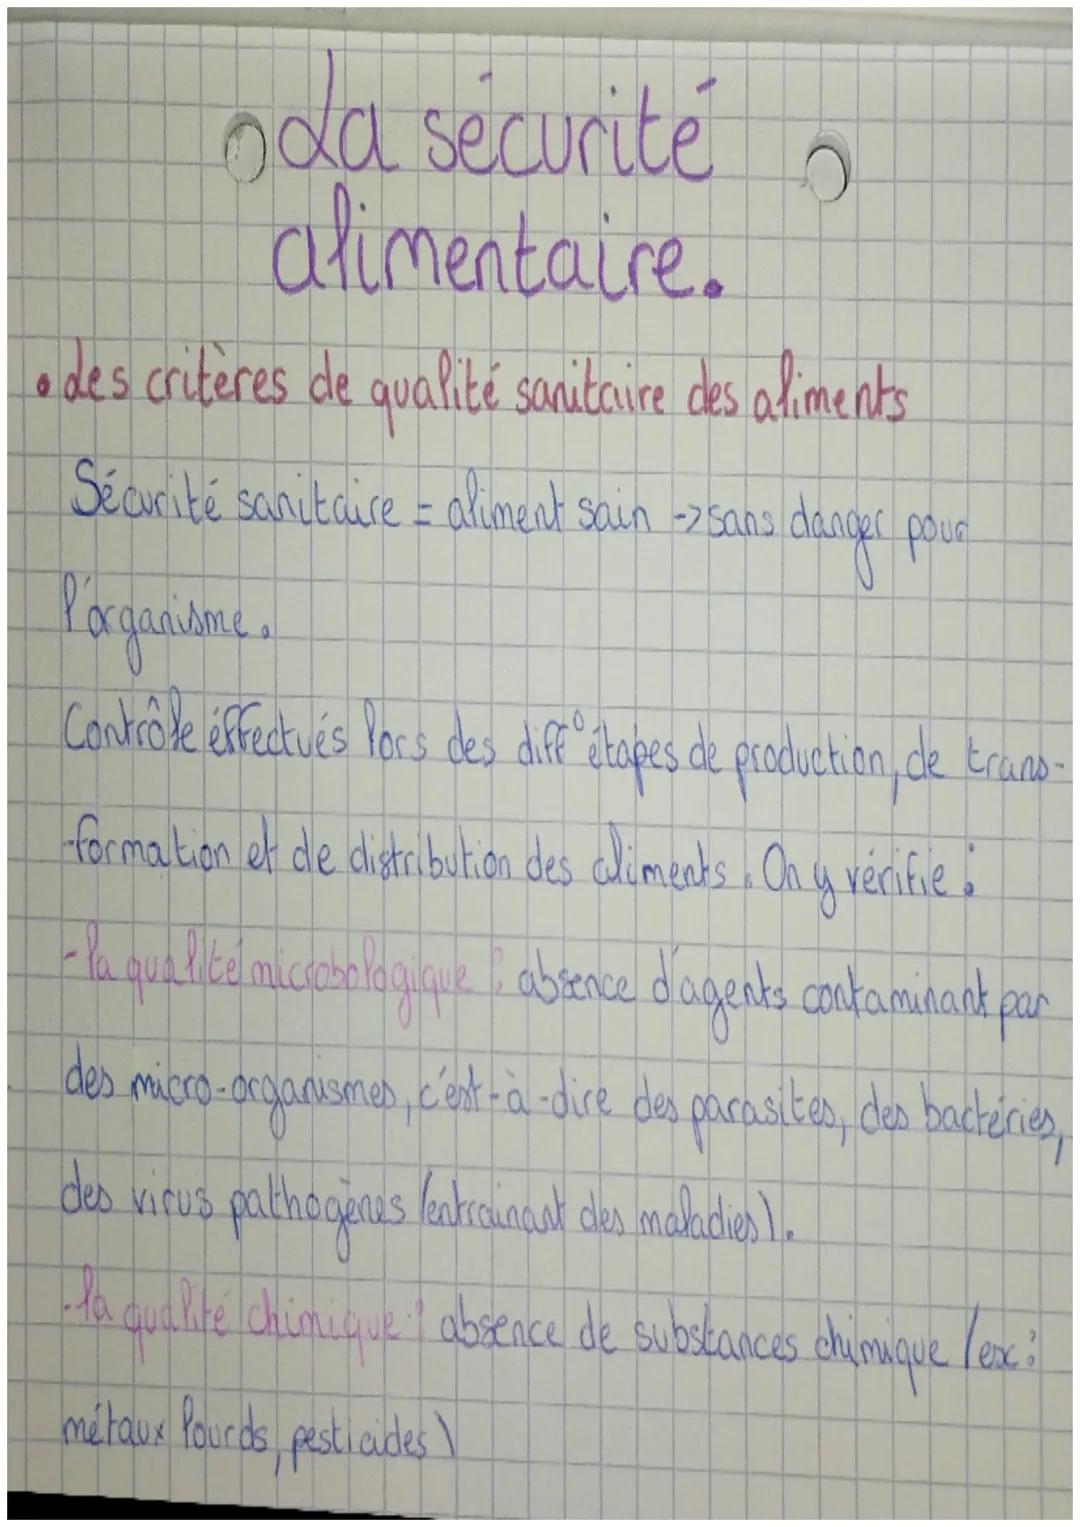 La sécurité
alimentaire.
• des critères de qualité sanitaire des aliments
Sécurité sanitaire = aliment sain -> sans danger pour
l'organisme.
Contrôle éffectués lors des diff° étapes de production, de trans-
-formation et de distribution des aliments. On y vérifie :
- la qualité microbologique : absence d'agents contaminant par
des micro-organismes, c'est-à-dire des parasites, des bactéries,
des virus pathogènes (entrainant des maladies).
- la qualité chimique : absence de substances chimique (ex :
métaux lourds, pesticides)